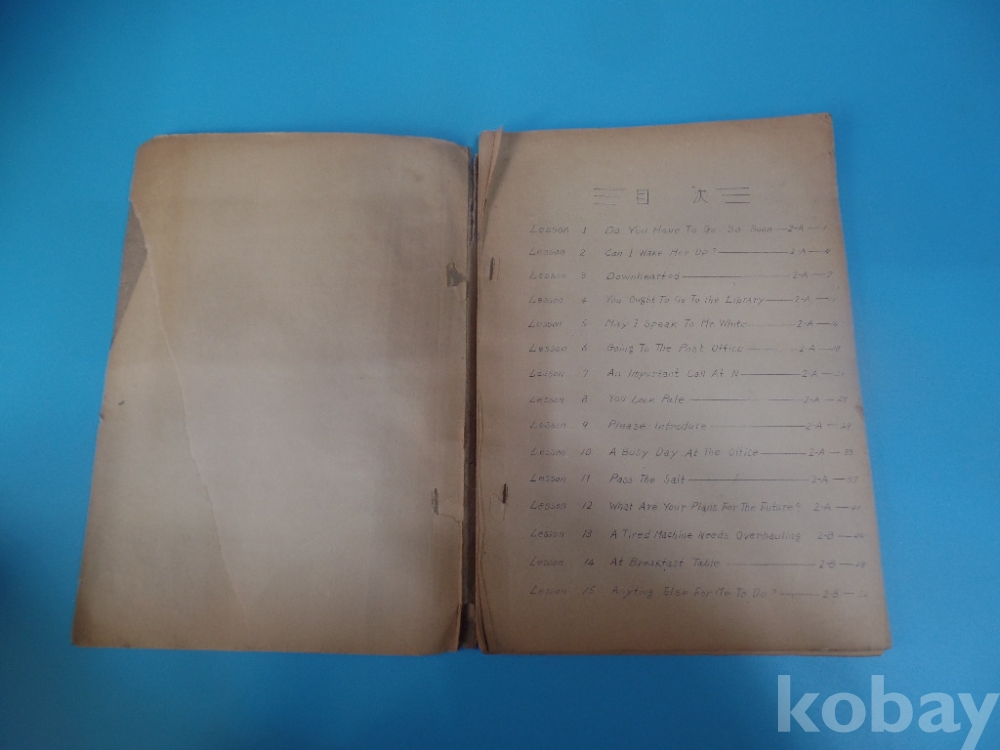 目 次
Lesson 1 Do You Have To Go So Soon — 2-A — 1
Lesson 2 Can I Wake Her Up? — 2-A —
Lesson 3 Downhearted — 2-A —
Lesson 4 You Ought To Go To The Library — 2-A —
Lesson 5 May I Speak To Mr White — 2-A —
Lesson 6 Going To The Post Office — 2-A —
Lesson 7 An Important Call At N — 2-A —
Lesson 8 You Look Pale — 2-A —
Lesson 9 Please Introduce — 2-A — 29
Lesson 10 A Busy Day At The Office — 2-A —
Lesson 11 Pass The Salt — 2-A —
Lesson 12 What Are Your Plans For The Future? 2-A —
Lesson 13 A Tired Machine Needs Overhauling 2-B —
Lesson 14 At Breakfast Table — 2-B —
Lesson 15 Anyting Else For Me To Do? — 2-B —
kobay